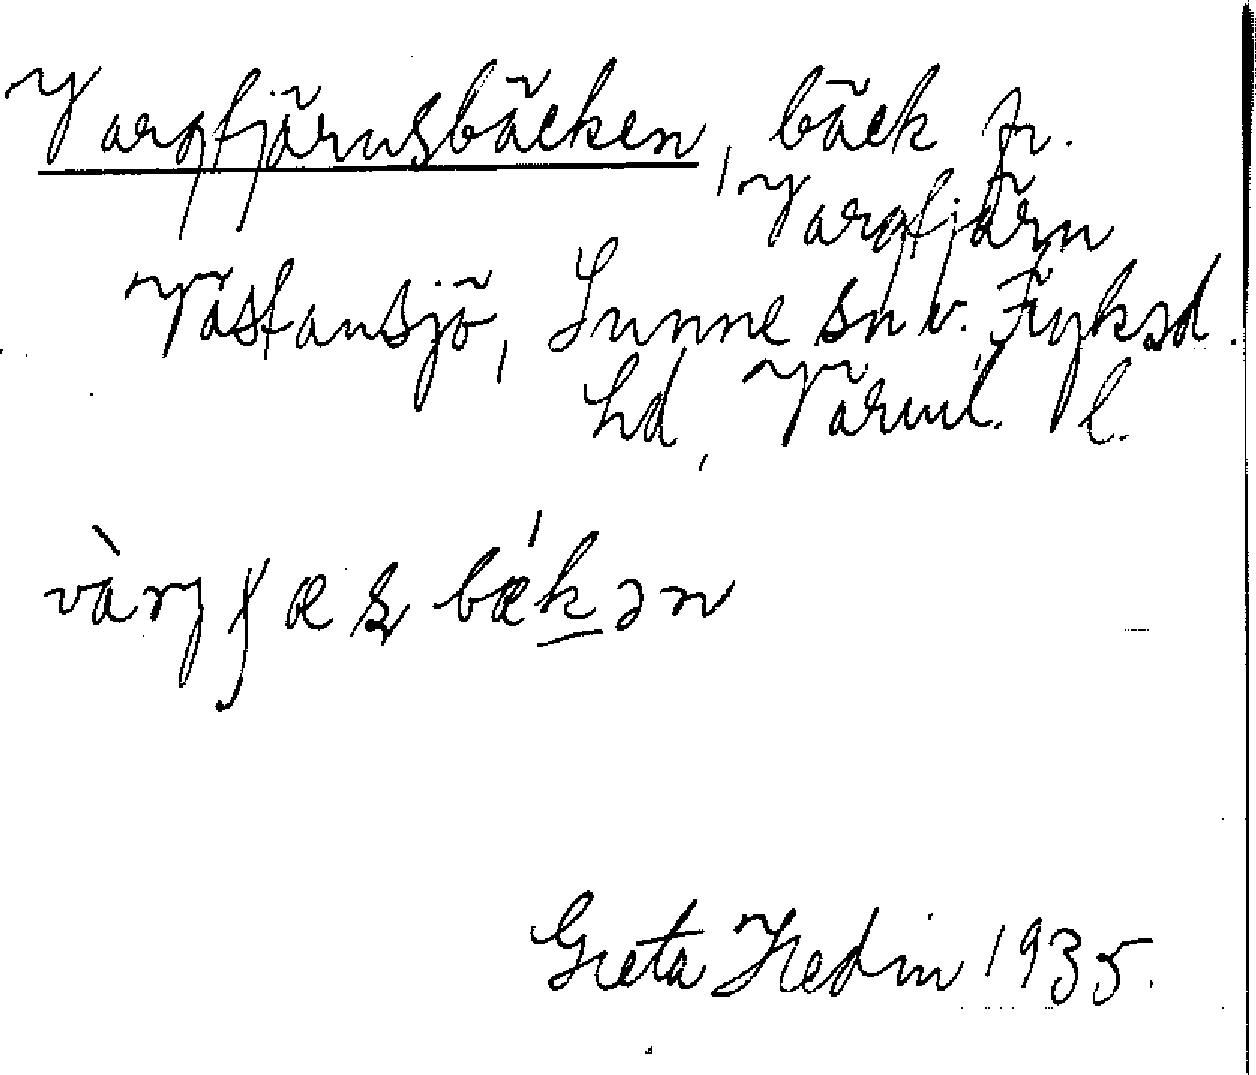 Vargtjärnsbäcken, bäck fr.
Vargtjärn
Västansjö, Sunne sn v. Fryksd.
hd, Värml. l.
Greta Hedin 1935.